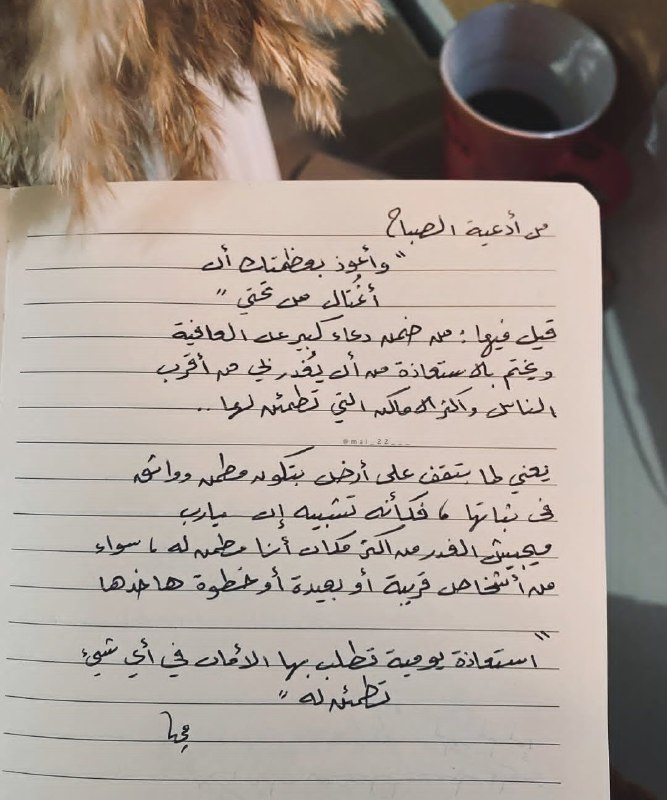 من أدعية الصباح
"وأعوذ بعظمتك أن
أُغتال من تحتي"
قيل فيها: من ضمن دعاء كبير عن العافية
ويختم بالاستعاذة من أن يُغدر بي من أقرب
الناس وأكثر الأماكن التي تطمئن لها..
@mai_22___
يعني لما بتقف على أرض بتكون مطمن وواثق
في ثباتها، فكأنه تشبيه إن يارب
ميجيش الغدر من أكتر مكان أنا مطمن له، سواء
من أشخاص قريبة أو بعيدة أو خطوة هاخدها
"استعاذة يومية تطلب بها الأمان في أي شيء
تطمئن له"